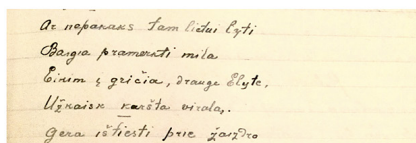 Ar nepakaks tam lietui lyti
Baigia pramerkti mila
Eikim į gričia, drauge Elyte,
Užkaisk karšta virala,.
Gera ištiesti prie žaizdro